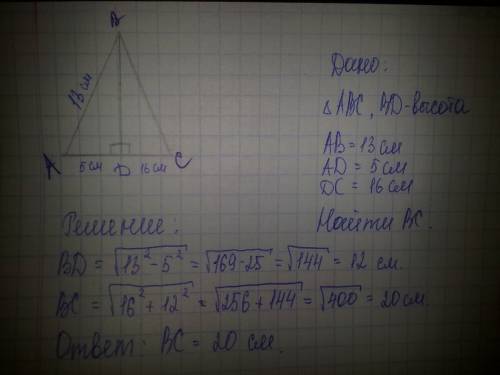 B
13 см
A
5 см D 16 см C
Дано:
△ABC, BD-высота
AB = 13 см
AD = 5 см
DC = 16 см
Найти BC.
Решение:
BD = √13² - 5² = √169-25 = √144 = 12 см.
BC = √16² + 12² = √256 + 144 = √400 = 20 см.
Ответ: BC = 20 см.